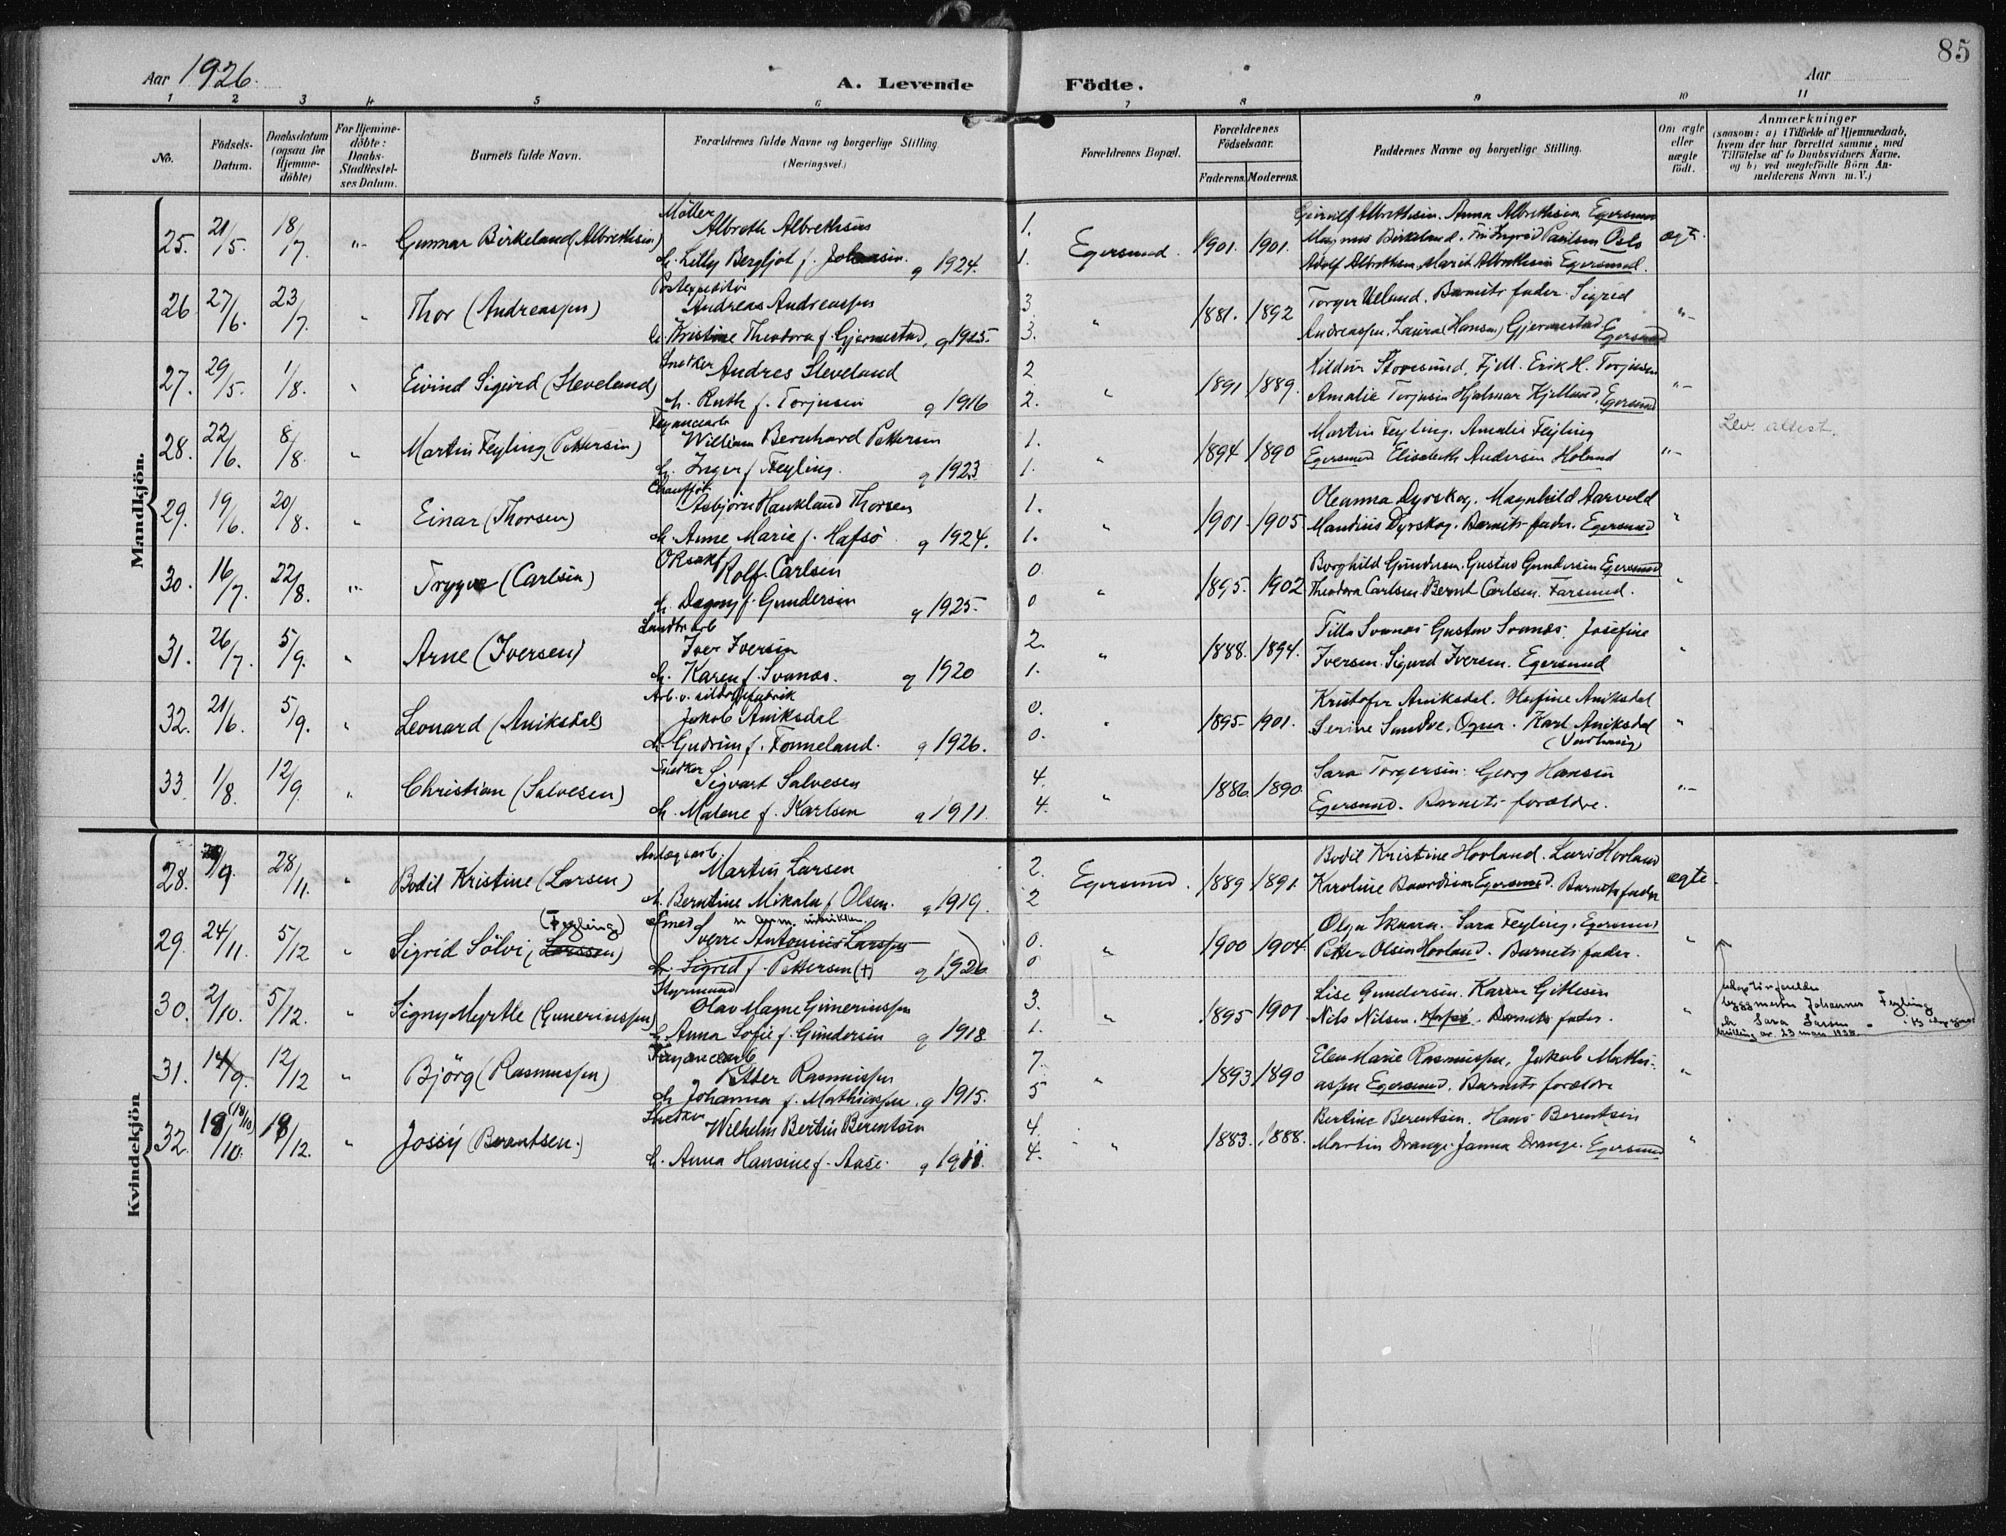 85
Aar 1926.
A. Levende Födte.
Aar
1 2 3 4 5 6 7 8 9 10 11
No.
Födsels-Datum.
Daabsdatum (ogsaa for Hjemme-döbte)
For Hjemme-döbte: Daabs-Stadfæstel-ses Datum.
Barnets fulde Navn.
Forældrenes fulde Navne og borgerlige Stilling (Næringsvei.)
Forældrenes Bopæl.
Forældrenes Födselsaar.
Faderens. Moderens.
Faddernes Navne og borgerlige Stilling.
Om ægte eller uægte födt.
Anmærkninger
(saasom: a) i Tilfælde af Hjemmedaab,
hvem der har forrettet samme, med
Tilföielse af to Daabsvidners Navne,
og b) ved uægtefödte Börn An-
melderens Navn m. V.)
Mandkjön.
Møller
25. 21/5. 18/7. Gunnar Birkeland (Albrethsen) Albreth Albrethsen
h. Lilly Bergljot f. Johansen. g 1924.
1. 1. Egersund. 1901. 1901.
Albrethsen. Anna Albrethsen Egersund
Magnus Birkeland. Ingrid Paulsen Oslo
Adolf Albrethsen Marit Albrethsen Egersund.
ægte.
Postexpeditør
26 27/6. 23/7. Thor (Andreassen) Andreas Andreassen
h. Kristine Theodora f. Gjermestad. g 1915.
3. 3. 1881. 1892
Torger Ueland. Barnets fader. Sigrid
Andreassen. Laura (Hansen) Gjermestad Egersund
Snekker
27. 29/5. 1/8. Eivind Sigurd (Sleveland) Andres Sleveland
h. Ruth f. Torjusen g 1916
2 2. 1891 1889.
Erik H. Torjusen
Amalie Torjusen Hjalmar Kjelland. Egersund
Fayancearb
28. 22/6. 8/8. Martin Feyling (Pettersen) William Bernhard Pettersen
h. Inger f. Feyling. g 1923
1. 1. 1894 1890
Martin Feyling. Amalie Feyling
Egersund Elisabeth Andersen
Lev. attest.
Chauffør
29. 19/6. 20/8. Einar (Thorsen) Asbjørn Haukland Thorsen
h. Anne Marie f. Hafsø g 1924.
1. 1. 1901 1905
Oleanna Dyrskog. Magnhild Aarvold
Mandius Dyrskog. Barnets fader. Egersund
30. 16/7. 22/8. Trygve (Carlsen) Rolf Carlsen
h. Dagny f. Gundersen g 1925.
0. 0 1895. 1902
Borghild Gundersen. Gustav Gundersen Egersund
Theodora Carlsen Bernt Carlsen. Farsund.
Landbr arb
31. 26/7. 5/9. Arne (Iversen) Iver Iversen
h. Karen f. Svanæs. g 1920
2. 1. 1888. 1894.
Tilla Svanæs Gustav Svanæs. Josefine
Iversen. Sigurd Iversen. Egersund
32. 21/6. 5/9. Leonard (Aniksdal) Jakob Aniksdal
h. Gudrun f. Tonneland. g 1926.
0. 0. 1895. 1901.
Kristofer Aniksdal. Aniksdal
Serine Sundve. Ogna. Karl Aniksdal
Snekker
33. 1/8. 12/9. Christian (Salvesen) Sigvart Salvesen
h. Malene f. Karlsen g 1911.
4. 4. 1886. 1890.
Sara Torgersen. Georg Hansen
Egersund. Barnets forældre.
Kvindekjön
28. 28/11. Bodil Kristine (Larsen) Martin Larsen
h. Berntine Mikala f. Olsen. g 1919.
2. 2 Egersund. 1889 1891.
Bodil Kristine Hovland. Lars Hovland
Karoline Egersund. Barnets fader
ægte.
(Feyling)
Smed
29. 24/11. 5/12 Sigrid Sölvi (Larssen) Sverre Antonius Larssen
h. Sigrid f. Pettersen (+) g 1926
0. 0 1900 1904.
Olga Skaara. Sara Feyling. Egersund
Petter Olsen Hovland. Barnets fader.
adoptivforeldre
byggmester Johannes Feyling
h. Sara Larsen
bevilling av 23 mars
Styrmand
30. 2/10. 5/12. Signy Myrtle (Guneriussen) Olav Magne Guneriussen
h. Anna Sofie f. Gundersen g 1918
3. 1. 1895 1901
Lise Gundersen. Karen Gitlesen
Nils Nilsen. Barnets fader.
Fayancearb
31. 14/9. 12/12 Björg (Rasmussen) Petter Rasmussen
h. Johanna f. Mathiassen. g 1915.
7. 5 1893 1890
Elen Marie Rasmussen, Jakob Mathi-
assen Egersund. Barnets forældre
Snekker
32. 18/10. (18/10) 18/12. Jossy (Berentsen.) Wilhelm Bertin Berentsen
h. Anna Hansine f. Aase. g 1911.
4. 4. 1883. 1888.
Bertine Berentsen. Hans Berentsen
Martin Drange. Janna Drange. Egersund